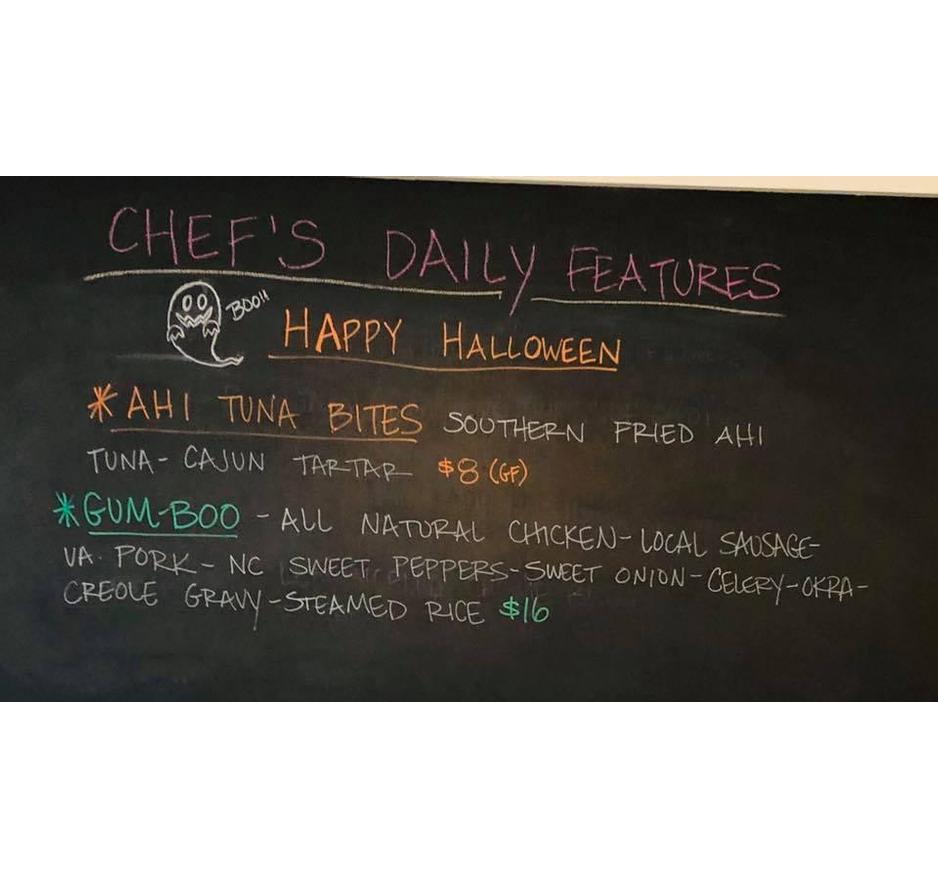 CHEF'S DAILY FEATURES
BOO!!
HAPPY HALLOWEEN
*AHI TUNA BITES SOUTHERN FRIED AHI
TUNA- CAJUN TARTAR $8 (GF)
*GUM-BOO - ALL NATURAL CHICKEN- LOCAL SAUSAGE-
VA. PORK- NC SWEET PEPPERS-SWEET ONION-CELERY-OKRA-
CREOLE GRAVY-STEAMED RICE $16